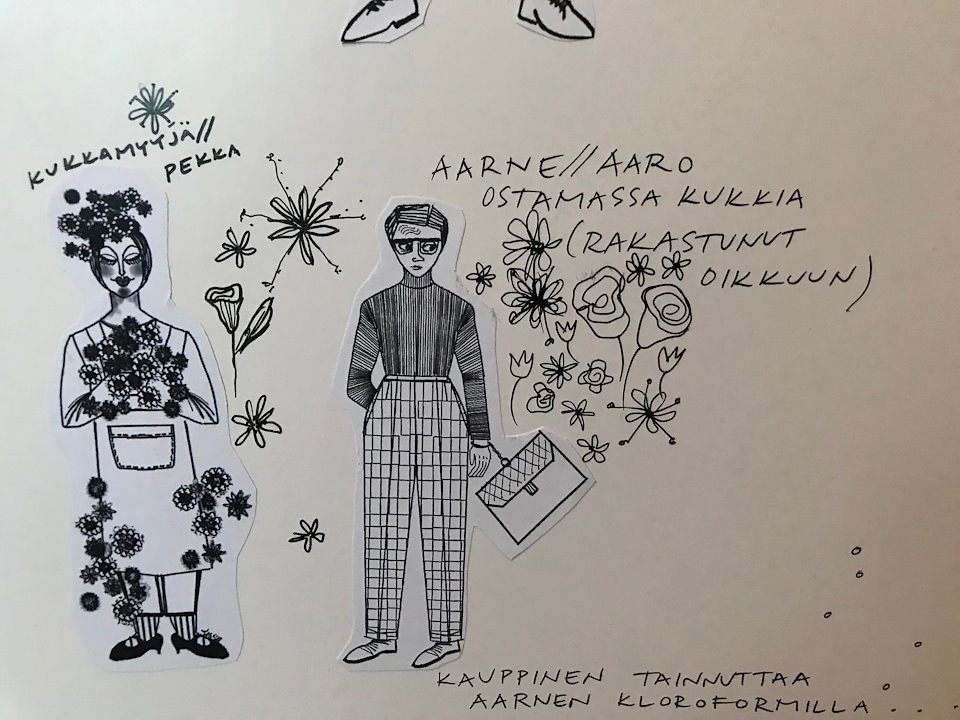 KUKKAMYYJÄ//
PEKKA
AARNE//AARO
OSTAMASSA KUKKIA
(RAKASTUNUT
OIKKUUN)
KAUPPINEN TAINNUTTAA
AARNEN KLOROFORMILLA...